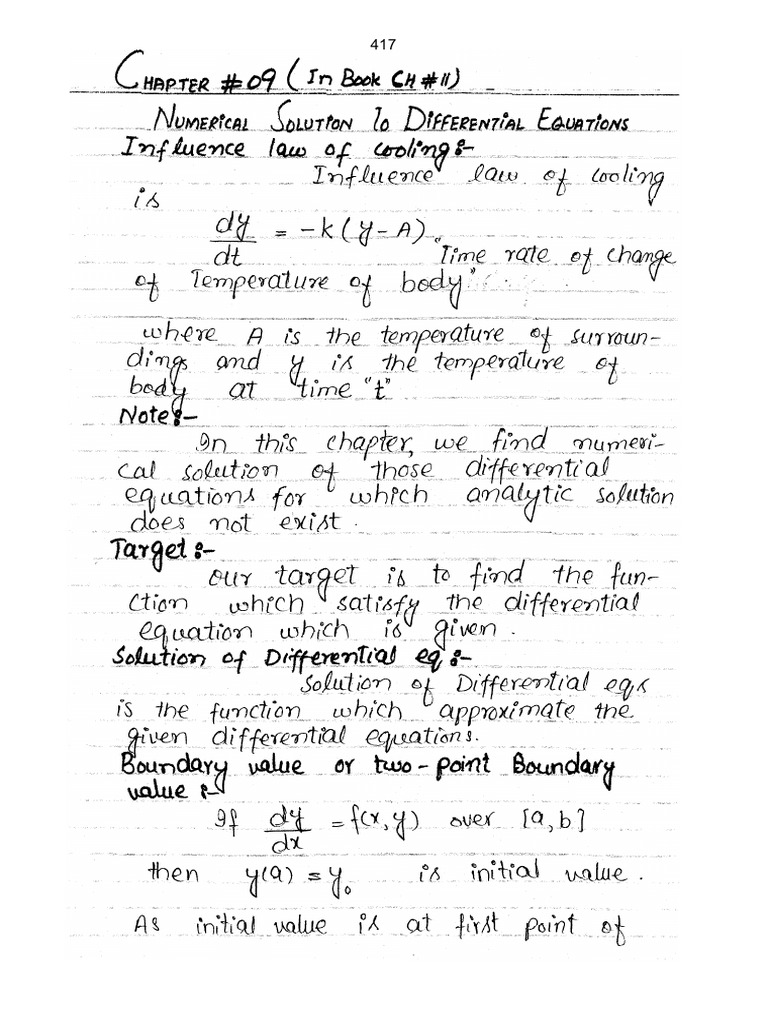 417
CHAPTER #09 (In Book CH #11)
NUMERICAL SOLUTION TO DIFFERENTIAL EQUATIONS
Influence law of cooling:-
Influence law of cooling
is
dy/dt = -k(y-A).
"Time rate of change
of Temperature of body"
where A is the temperature of surroun-
dings and y is the temperature of
body at time "t"
Note:-
In this chapter, we find numeri-
cal solution of those differential
equations for which analytic solution
does not exist.
Target:-
our target is to find the fun-
ction which satisfy the differential
equation which is given.
Solution of Differential eq:-
Solution of Differential eqs
is the function which approximate the
given differential equations.
Boundary value or two-point Boundary
value:-
If dy/dx = f(x,y) over [a,b]
then y(a) = y₀ is initial value.
As initial value is at first point of